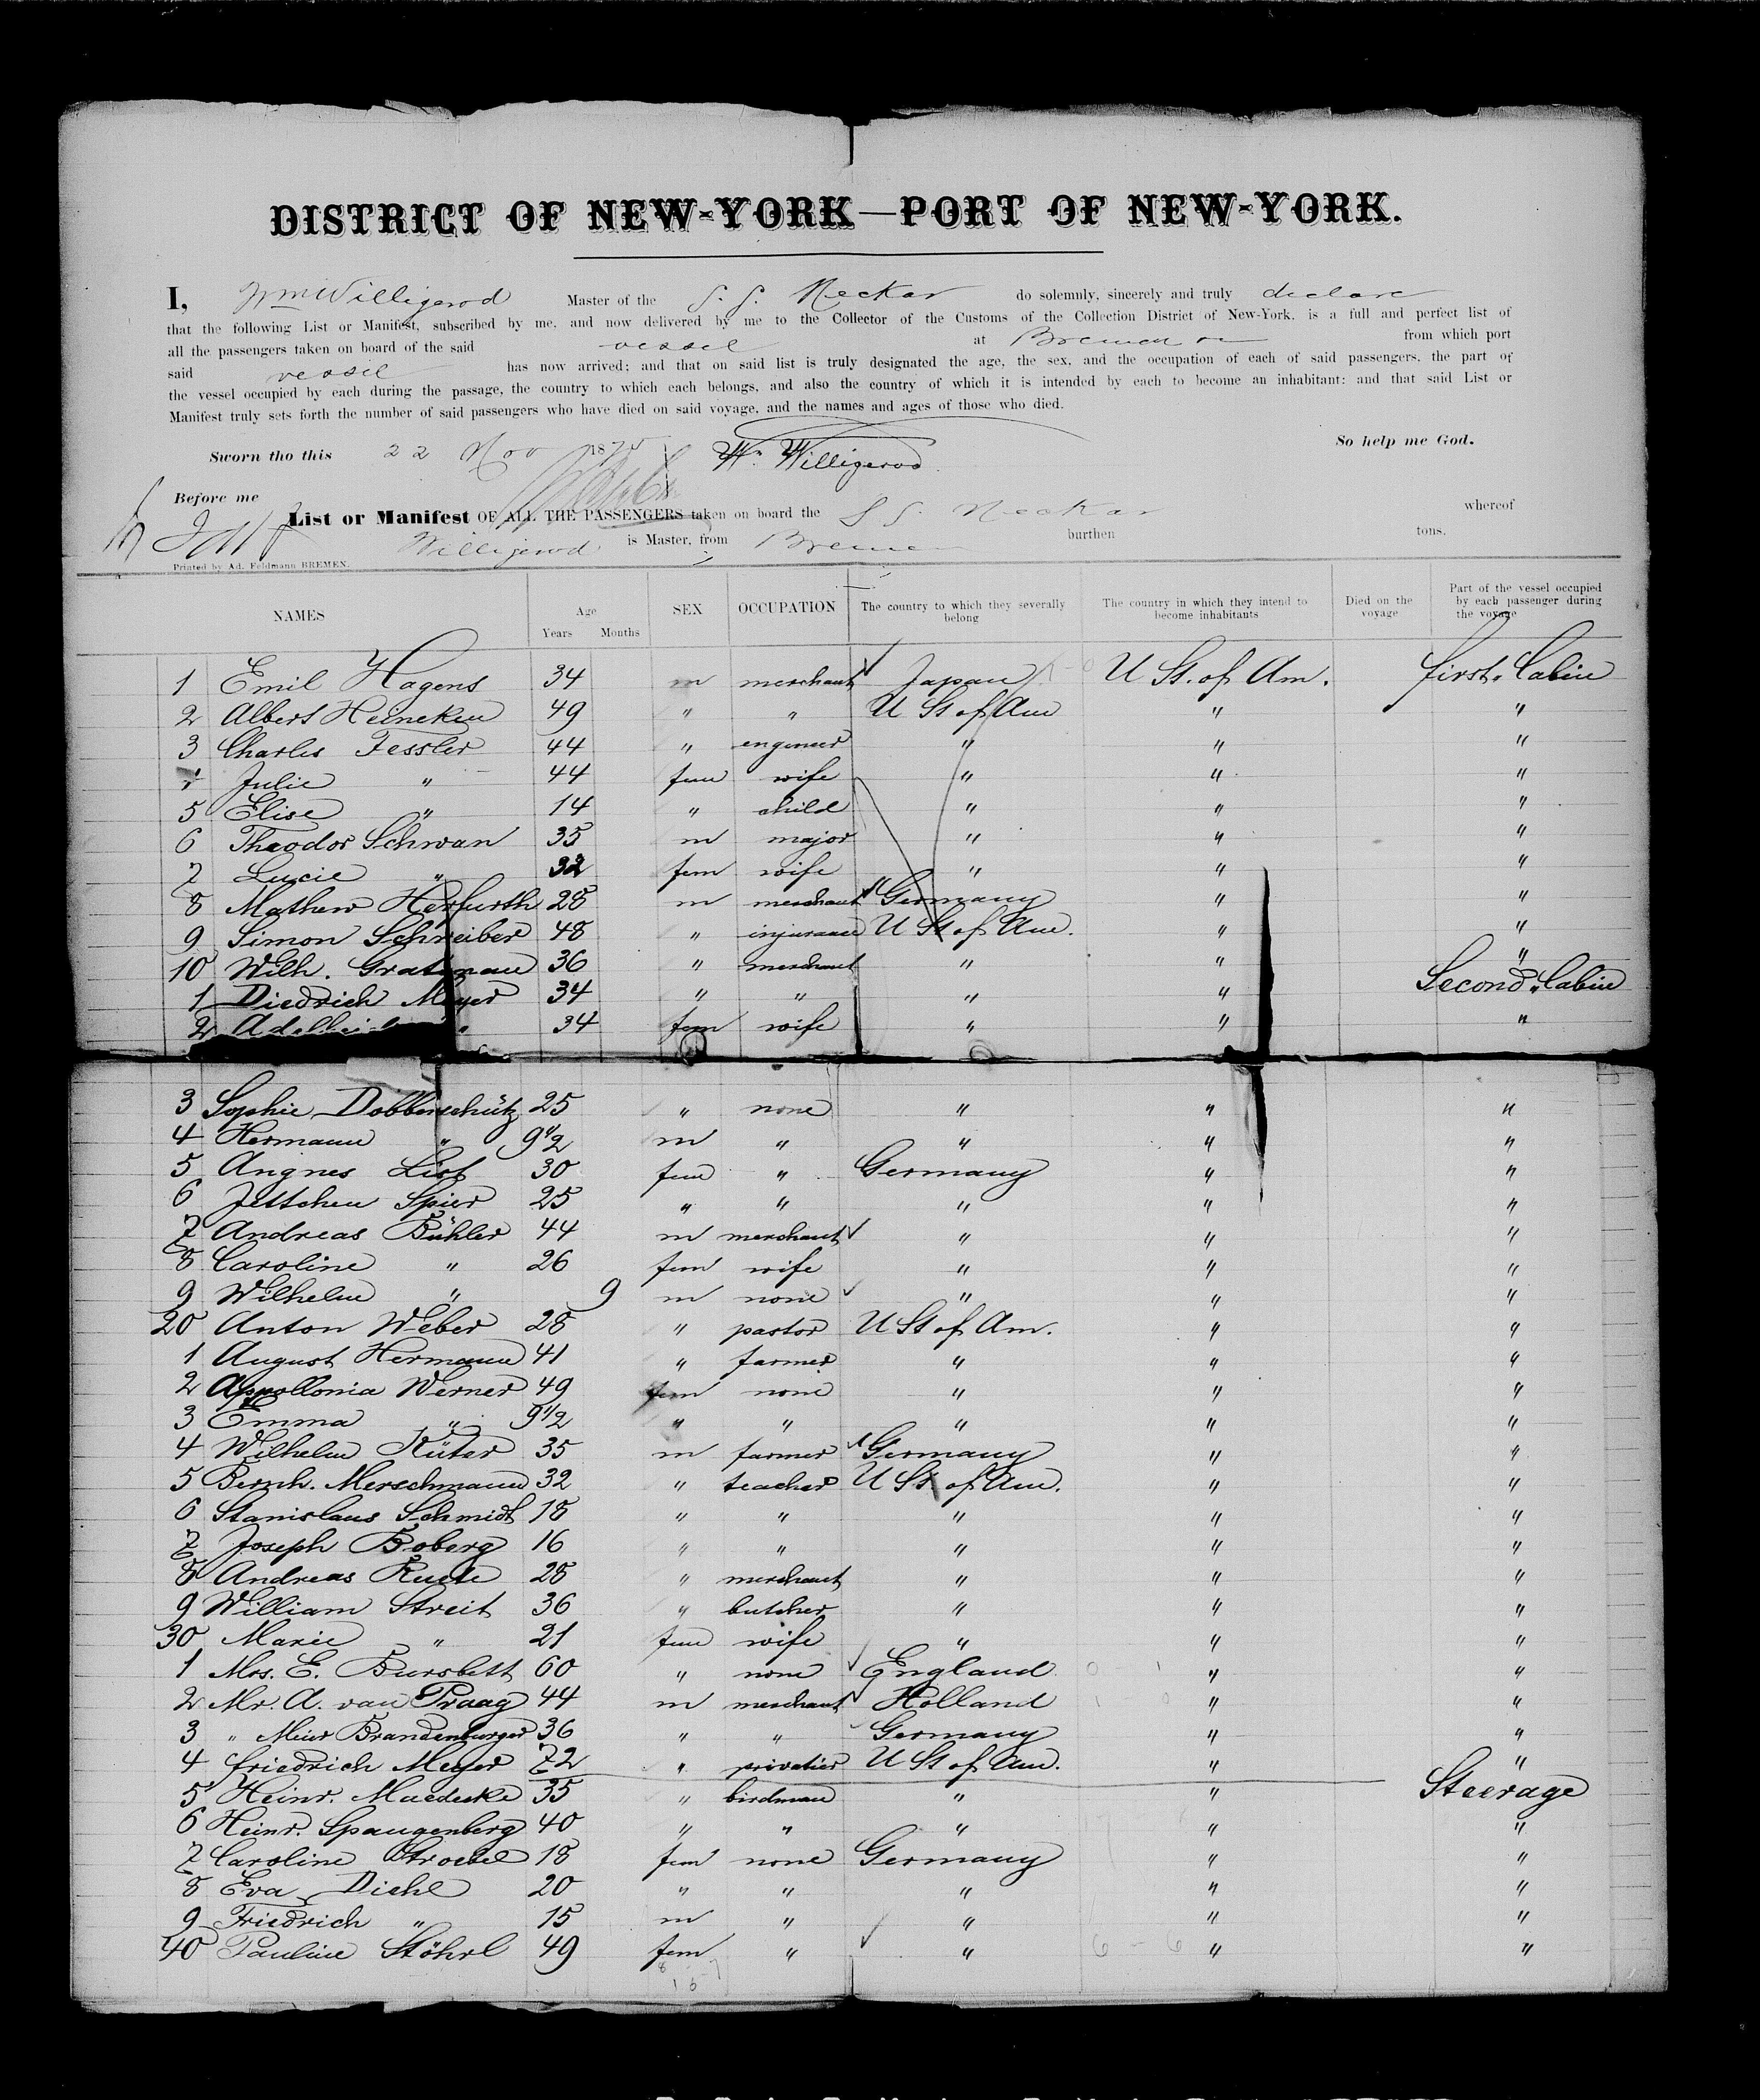 DISTRICT OF NEW-YORK—PORT OF NEW-YORK.
I, Wm Willigerod Master of the S. S. Neckar do solemnly, sincerely and truly declare
that the following List or Manifest, subscribed by me, and now delivered by me to the Collector of the Customs of the Collection District of New-York, is a full and perfect list of
all the passengers taken on board of the said vessel at Bremen from which port
said vessel has now arrived; and that on said list is truly designated the age, the sex, and the occupation of each of said passengers, the part of
the vessel occupied by each during the passage, the country to which each belongs, and also the country of which it is intended by each to become an inhabitant: and that said List or
Manifest truly sets forth the number of said passengers who have died on said voyage, and the names and ages of those who died.
So help me God.
Sworn tho this 22 Nov 1875 W. Willigerod
Before me
List or Manifest OF ALL THE PASSENGERS taken on board the S S. Neckar whereof
Willigerod is Master, from Bremen burthen tons.
Printed by Ad. Feldmann BREMEN.
NAMES Age Years Months SEX OCCUPATION The country to which they severally belong The country in which they intend to become inhabitants Died on the voyage Part of the vessel occupied by each passenger during the voyage
1 Emil Hagens 34 m merchant Japan U St. of Am. first Cabin
2 Albert Heineken 49 " " U St of Am " "
3 Charles Fessler 44 " engineer " " "
4 Julie " 44 fem wife " " "
5 Elise " 14 " child " " "
6 Theodor Schwan 35 m major " " "
7 Lucie " 32 fem wife " " "
8 Mathew Herfurth 28 m merchant Germany " "
9 Simon Schreiber 48 " injurance U St of Am. " "
10 Wilh. 36 " merchant " " "
1 Diedrich Meyer 34 " " " " Second Cabin
2 Adelheid " 34 fem wife " " "
3 Sophie Dobberschütz 25 " none " " "
4 Hermann " 9 1/2 m " " " "
5 Angnes List 30 fem " Germany " "
6 Jettchen Spier 25 " " " " "
7 Andreas Bühler 44 m merchant " " "
8 Caroline " 26 fem wife " " "
9 Wilhelm " 9 m none " " "
20 Anton Weber 28 " pastor U St of Am. " "
1 August Hermann 41 " farmer " " "
2 Appollonia Werner 49 fem none " " "
3 Emma " 9 1/2 " " " " "
4 Wilhelm Küter 35 m farmer Germany " "
5 Bernh. Merschmann 32 " teacher U St of Am. " "
6 Stanislaus Schmidt 18 " " " " "
7 Joseph Boberg 16 " " " " "
8 Andreas 28 " merchant " " "
9 William Streit 36 " butcher " " "
30 Marie " 21 fem wife " " "
1 Mrs. E. 60 " none England " "
2 Mr. A. van Praag 44 m merchant Holland " "
3 " Meier Brandenburger 36 " " Germany " "
4 friedrich Meyer 72 " privatier U St of Am. " "
5 Heinr. 35 " birdman " " Steerage
6 Heinr. Spangenberg 40 " " " " "
7 Caroline Stroebel 18 fem none Germany " "
8 Eva Diehl 20 " " " " "
9 Friedrich " 15 m " " " "
40 Pauline Stöhrl 49 fem " " " "